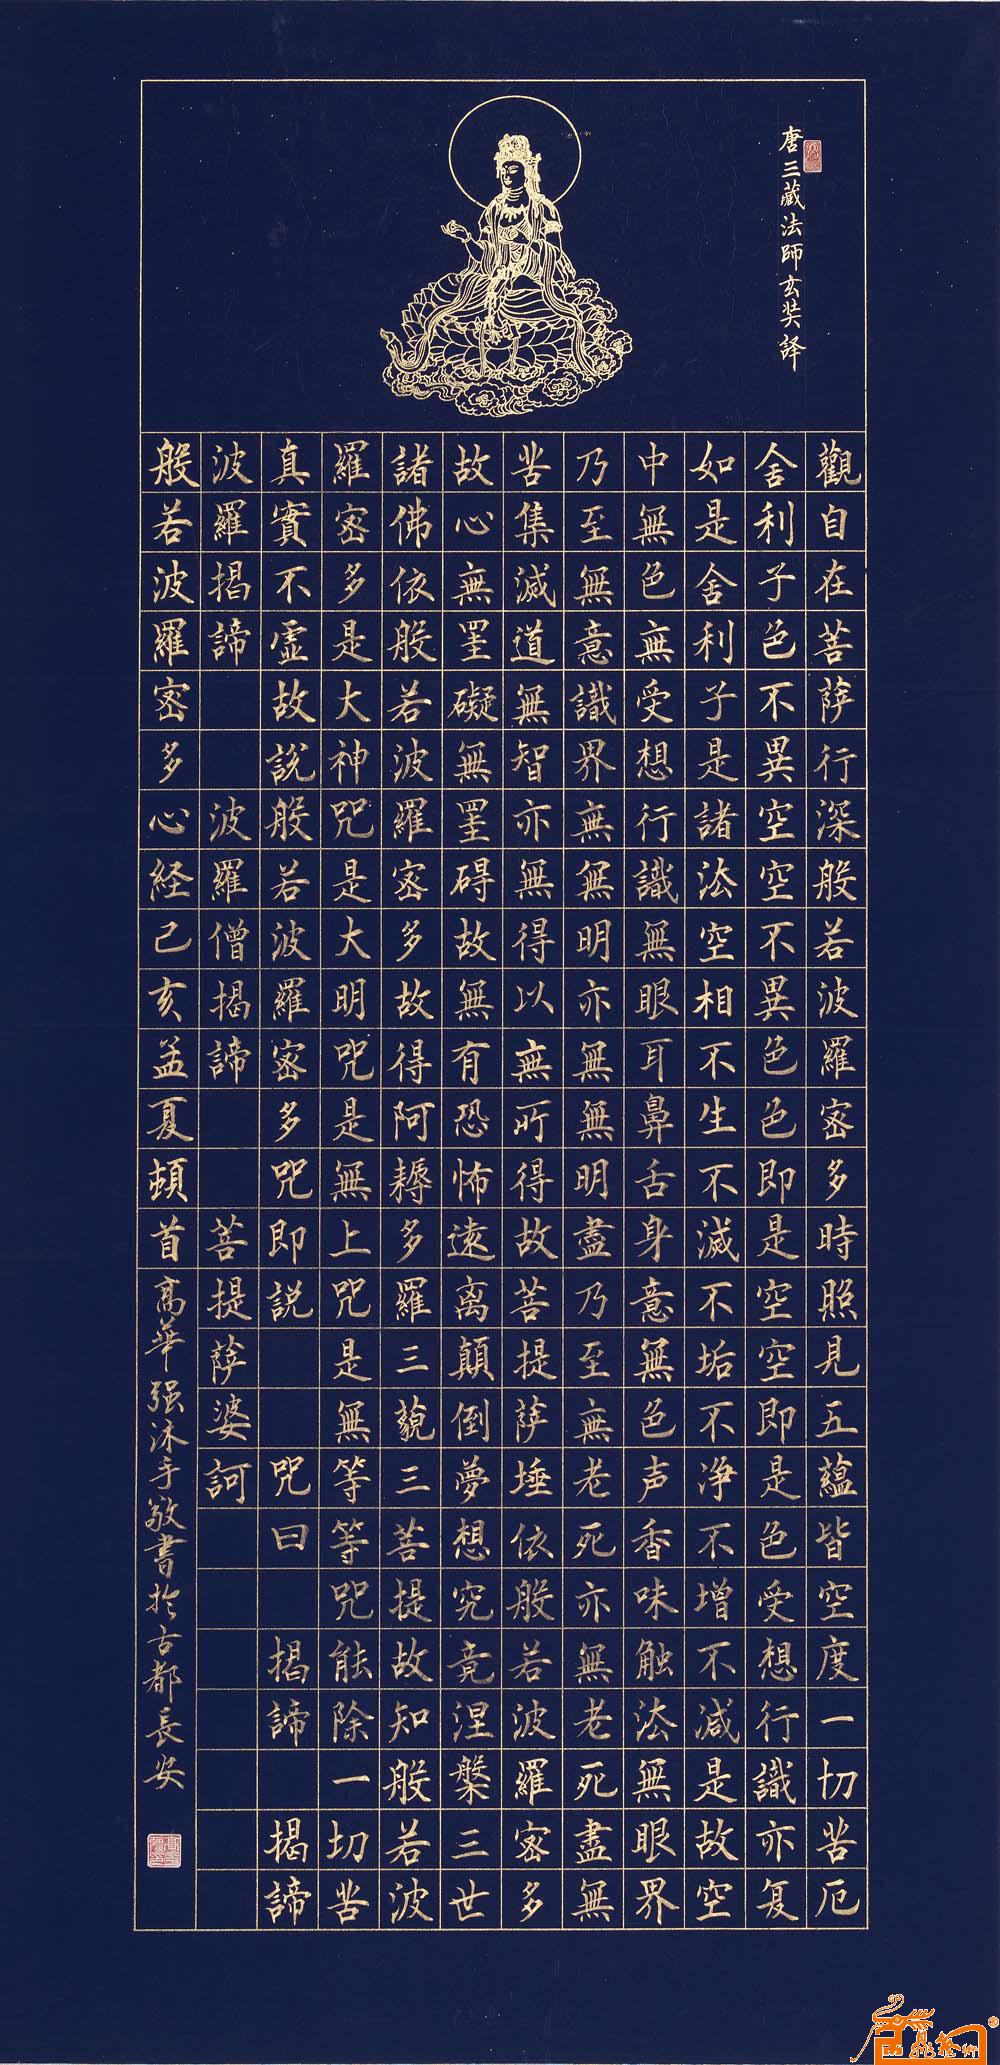 唐三藏法師玄奘譯
觀自在菩薩行深般若波羅密多時照見五蘊皆空度一切苦厄
舍利子色不異空空不異色色即是空空即是色受想行識亦复
如是舍利子是諸法空相不生不滅不垢不净不增不減是故空
中無色無受想行識無眼耳鼻舌身意無色声香味触法無眼界
乃至無意識界無無明亦無無明盡乃至無老死亦無老死盡無
苦集滅道無智亦無得以無所得故菩提薩埵依般若波羅密多
故心無罣礙無罣碍故無有恐怖遠离顛倒夢想究竟涅槃三世
諸佛依般若波羅密多故得阿耨多羅三藐三菩提故知般若波
羅密多是大神咒是大明咒是無上咒是無等等咒能除一切苦
真實不虛故說般若波羅密多咒即説 咒曰 揭諦 揭諦
波羅揭諦 波羅僧揭諦 菩提薩婆訶
般若波羅密多心経己亥孟夏頓首
高華强沐手敬書於古都長安